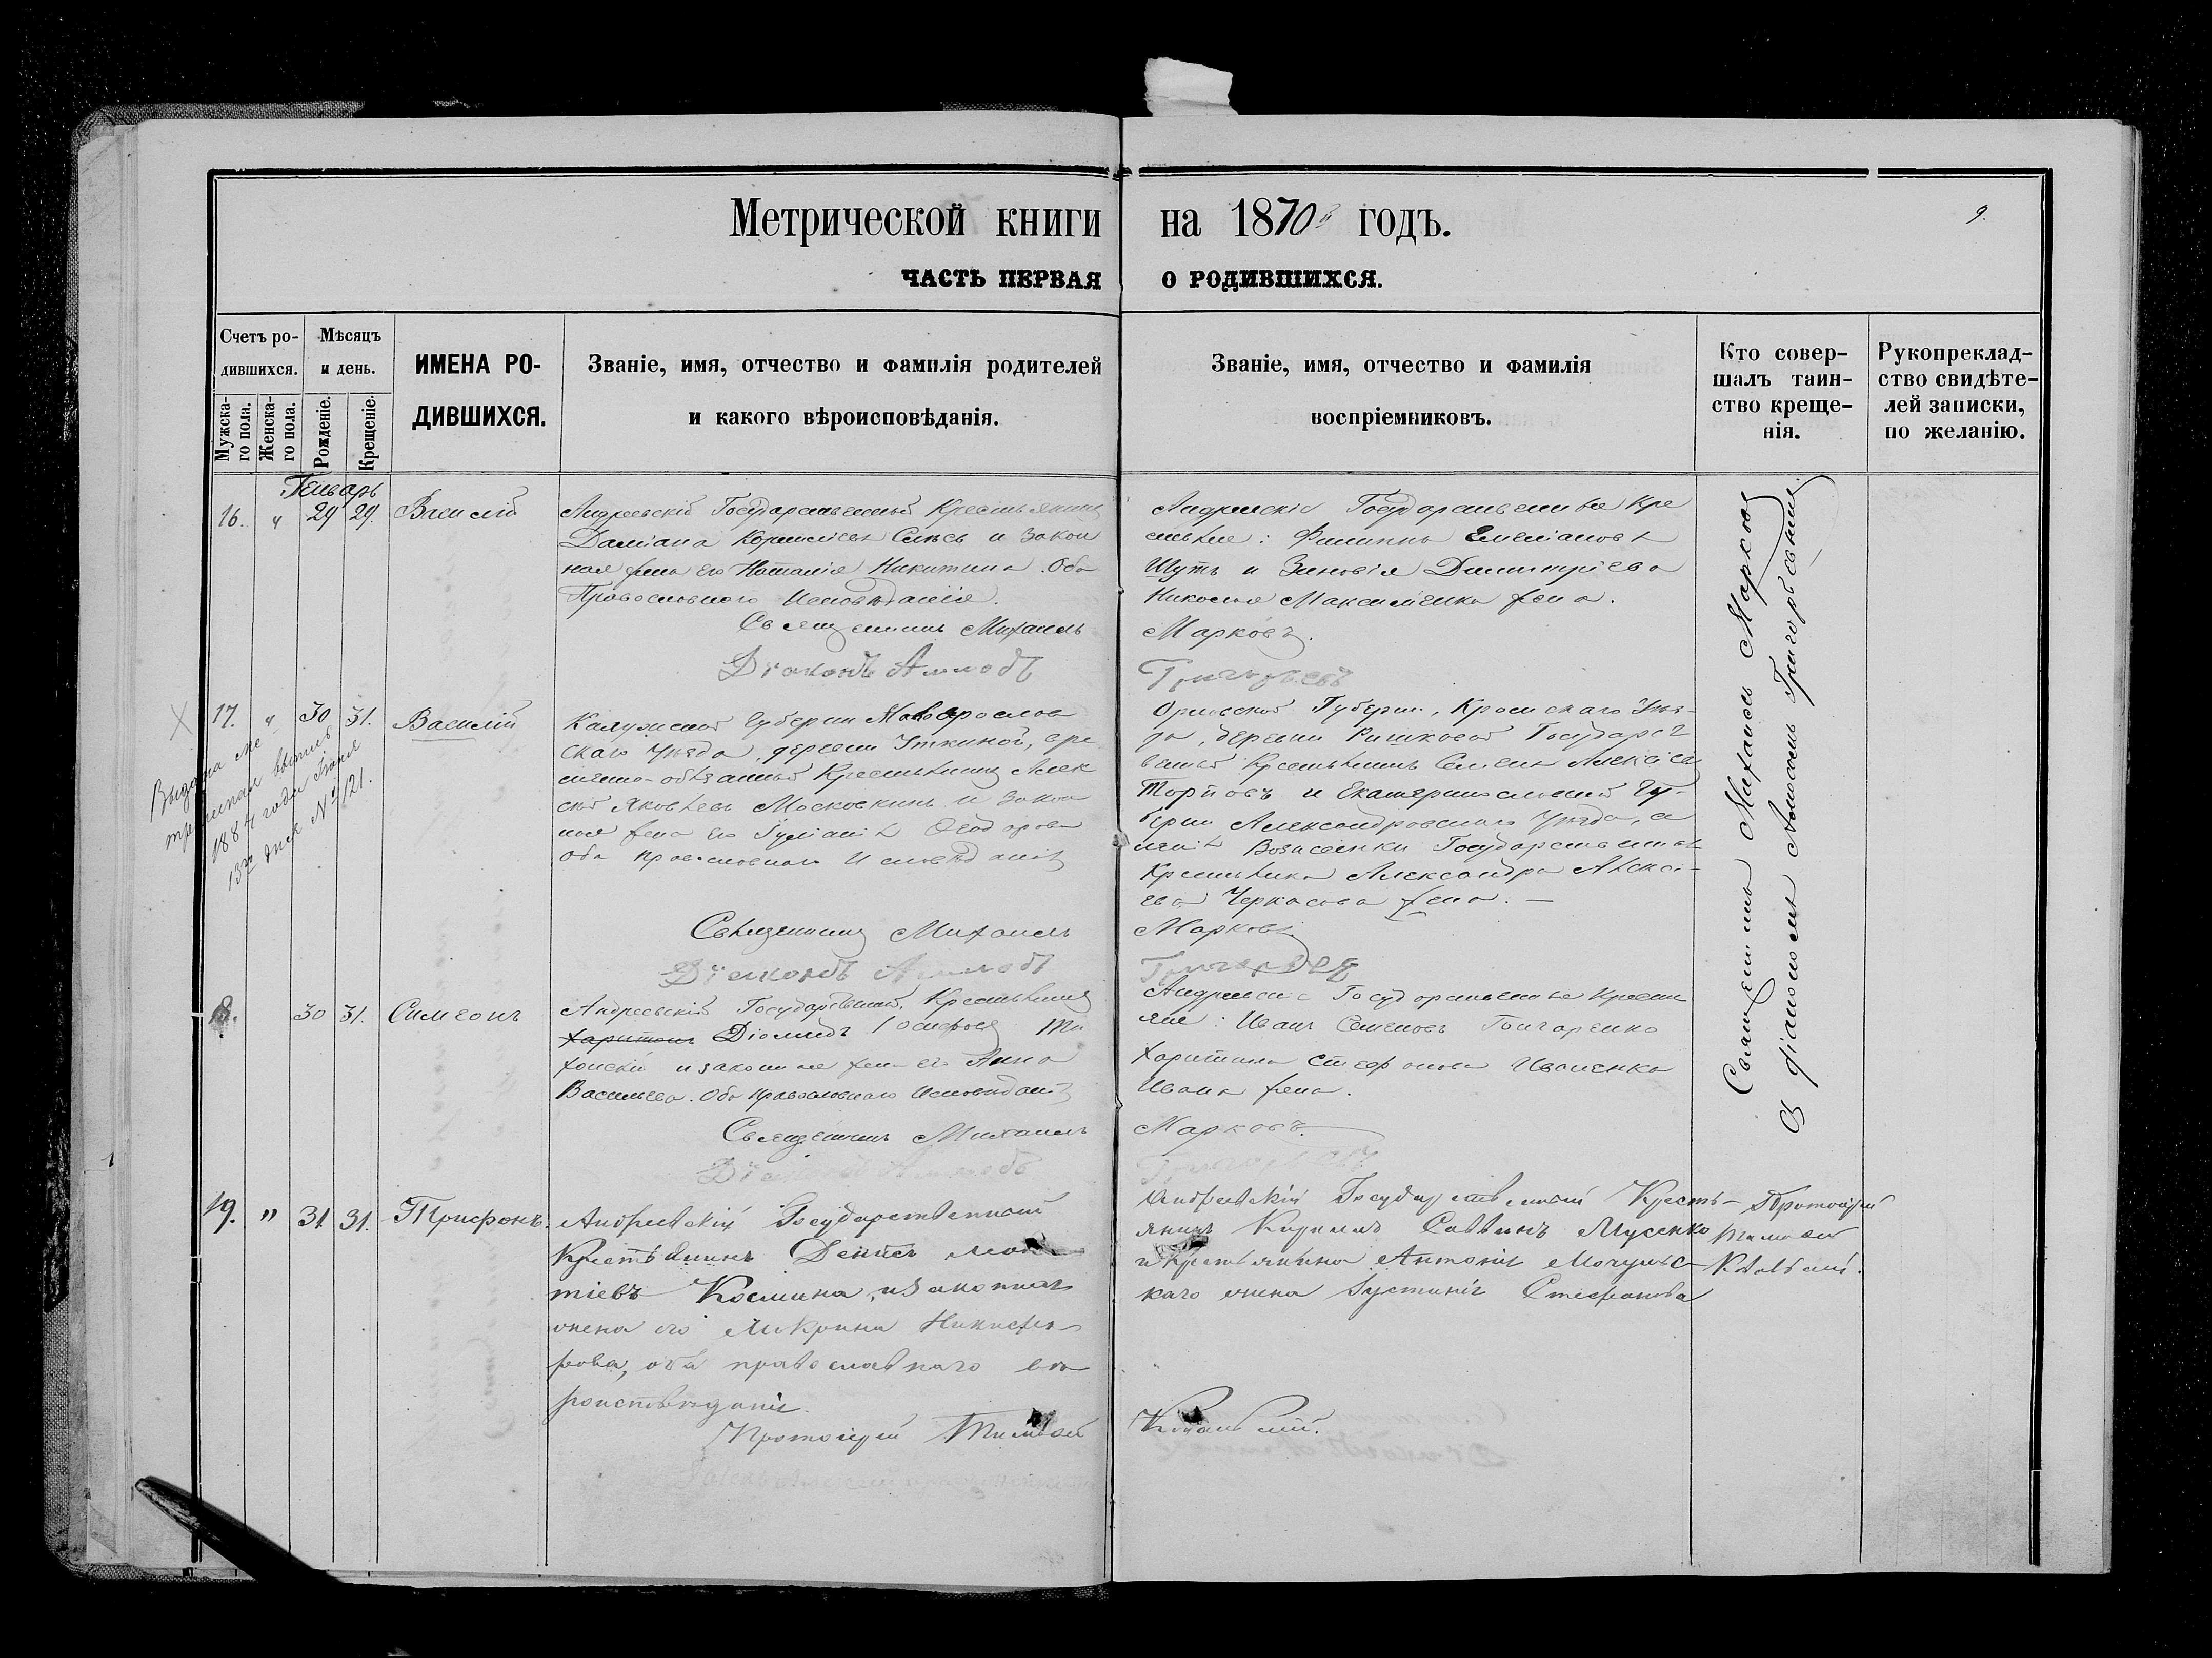 Метрической книги на 1870й годъ.
9.
ЧАСТЬ ПЕРВАЯ О РОДИВШИХСЯ.
Счетъ ро-
дившихся.
Мужска-
го пола.
Женска-
го пола.
Мѣсяцъ
и день.
Рожденіе.
Крещеніе.
ИМЕНА РО-
ДИВШИХСЯ.
Званіе, имя, отчество и фамилія родителей
и какого вѣроисповѣданія.
Званіе, имя, отчество и фамилія
воспріемниковъ.
Кто совер-
шалъ таин-
ство креще-
нія.
Рукоприклад-
ство свидѣте-
лей записки,
по желанію.
Генварь
16. " 29 29. Василій
Андреевскій Государственный Крестьянинъ
Даміана и закон
ная жена его Наталія Никитина. Оба
Православного Исповѣданія.
Священникъ Михаилъ
Діаконъ
Андреевскіе Государственные Кре
стьяне: Филиппъ Емеліановъ
Шуть и Зиновія Димитріева
Николая Максименка жена.
Марковъ.
Григорьевъ
17. " 30 31. Василій
Выдана ме
трическая выпись
1887 года Іюня
13го дня № 121.
Калужской Губерніи
скаго Уѣзда, деревни Уткиной, вре
менно-обязанный Крестьянинъ Алек
сѣй Яковлевъ Московкинъ и закон
ная жена его Іуліанія Ѳеодорова
Оба православнаго Исповѣданія
Священникъ Михаилъ
Діаконъ
Орловской Губерніи, Кромскаго Уѣз-
да, деревни Рышковой Государст
венный Крестьянинъ Семенъ Алексіевъ
и Екатеринославской Гу-
берніи Александровскаго Уѣзда, се
ленія Вознесенки Государственнаго
Крестьянина Александра Алексі-
ева Черкасова жена. —
Марковъ.
Григорьевъ
18. 30 31. Симеонъ
Андреевскій Государственный Крестьянинъ
Харитонъ Діомидъ Іосифовъ Ти
хонскій и законная жена его Анна
Васильева. Оба православнаго Исповѣданія
Священникъ Михаилъ
Андреевскіе Государственные Кресть
яне: Иванъ Семеновъ Гончаренко
Харитина Стефанова Иваненка
Ивана жена.
Марковъ.
Григорьевъ
Священникъ Михаилъ Марковъ
съ діакономъ Григорьевымъ.
19. " 31 31. Трифонъ.
Андреевскій Государственный
Крестьянинъ
тіевъ Космина, и законная
жена его Макрина Никифо-
рова, оба православнаго вѣ
роисповѣданія.
Протоіерей Тимофей
Андреевскій Государственный Кресть-
янинъ Кириллъ Саввинъ Мусенко
и крестьянина Антонія Могульс-
каго жена Іустинія Стефанова
Ковальскій.
Протоіерей
Тимофей
Ковальскій.